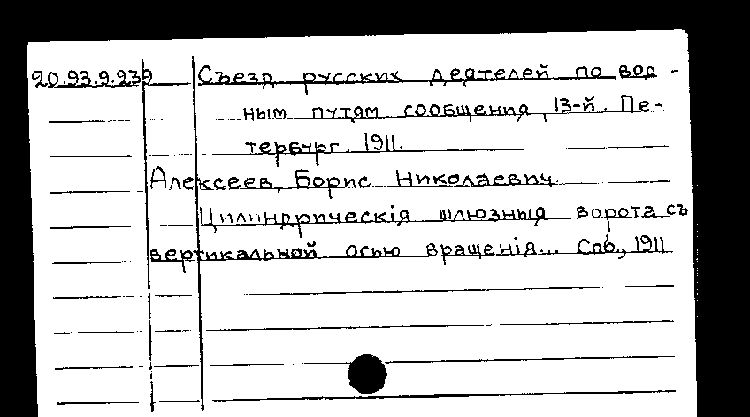 20.93.9.239 Съезд русских деятелей по вод-
ным путям сообщения, 13-й. Пе-
тербург. 1911.
Алексеев, Борис Николаевич.
Цилиндрическія шлюзныя ворота съ
вертикальной осью вращенія... Спб., 1911